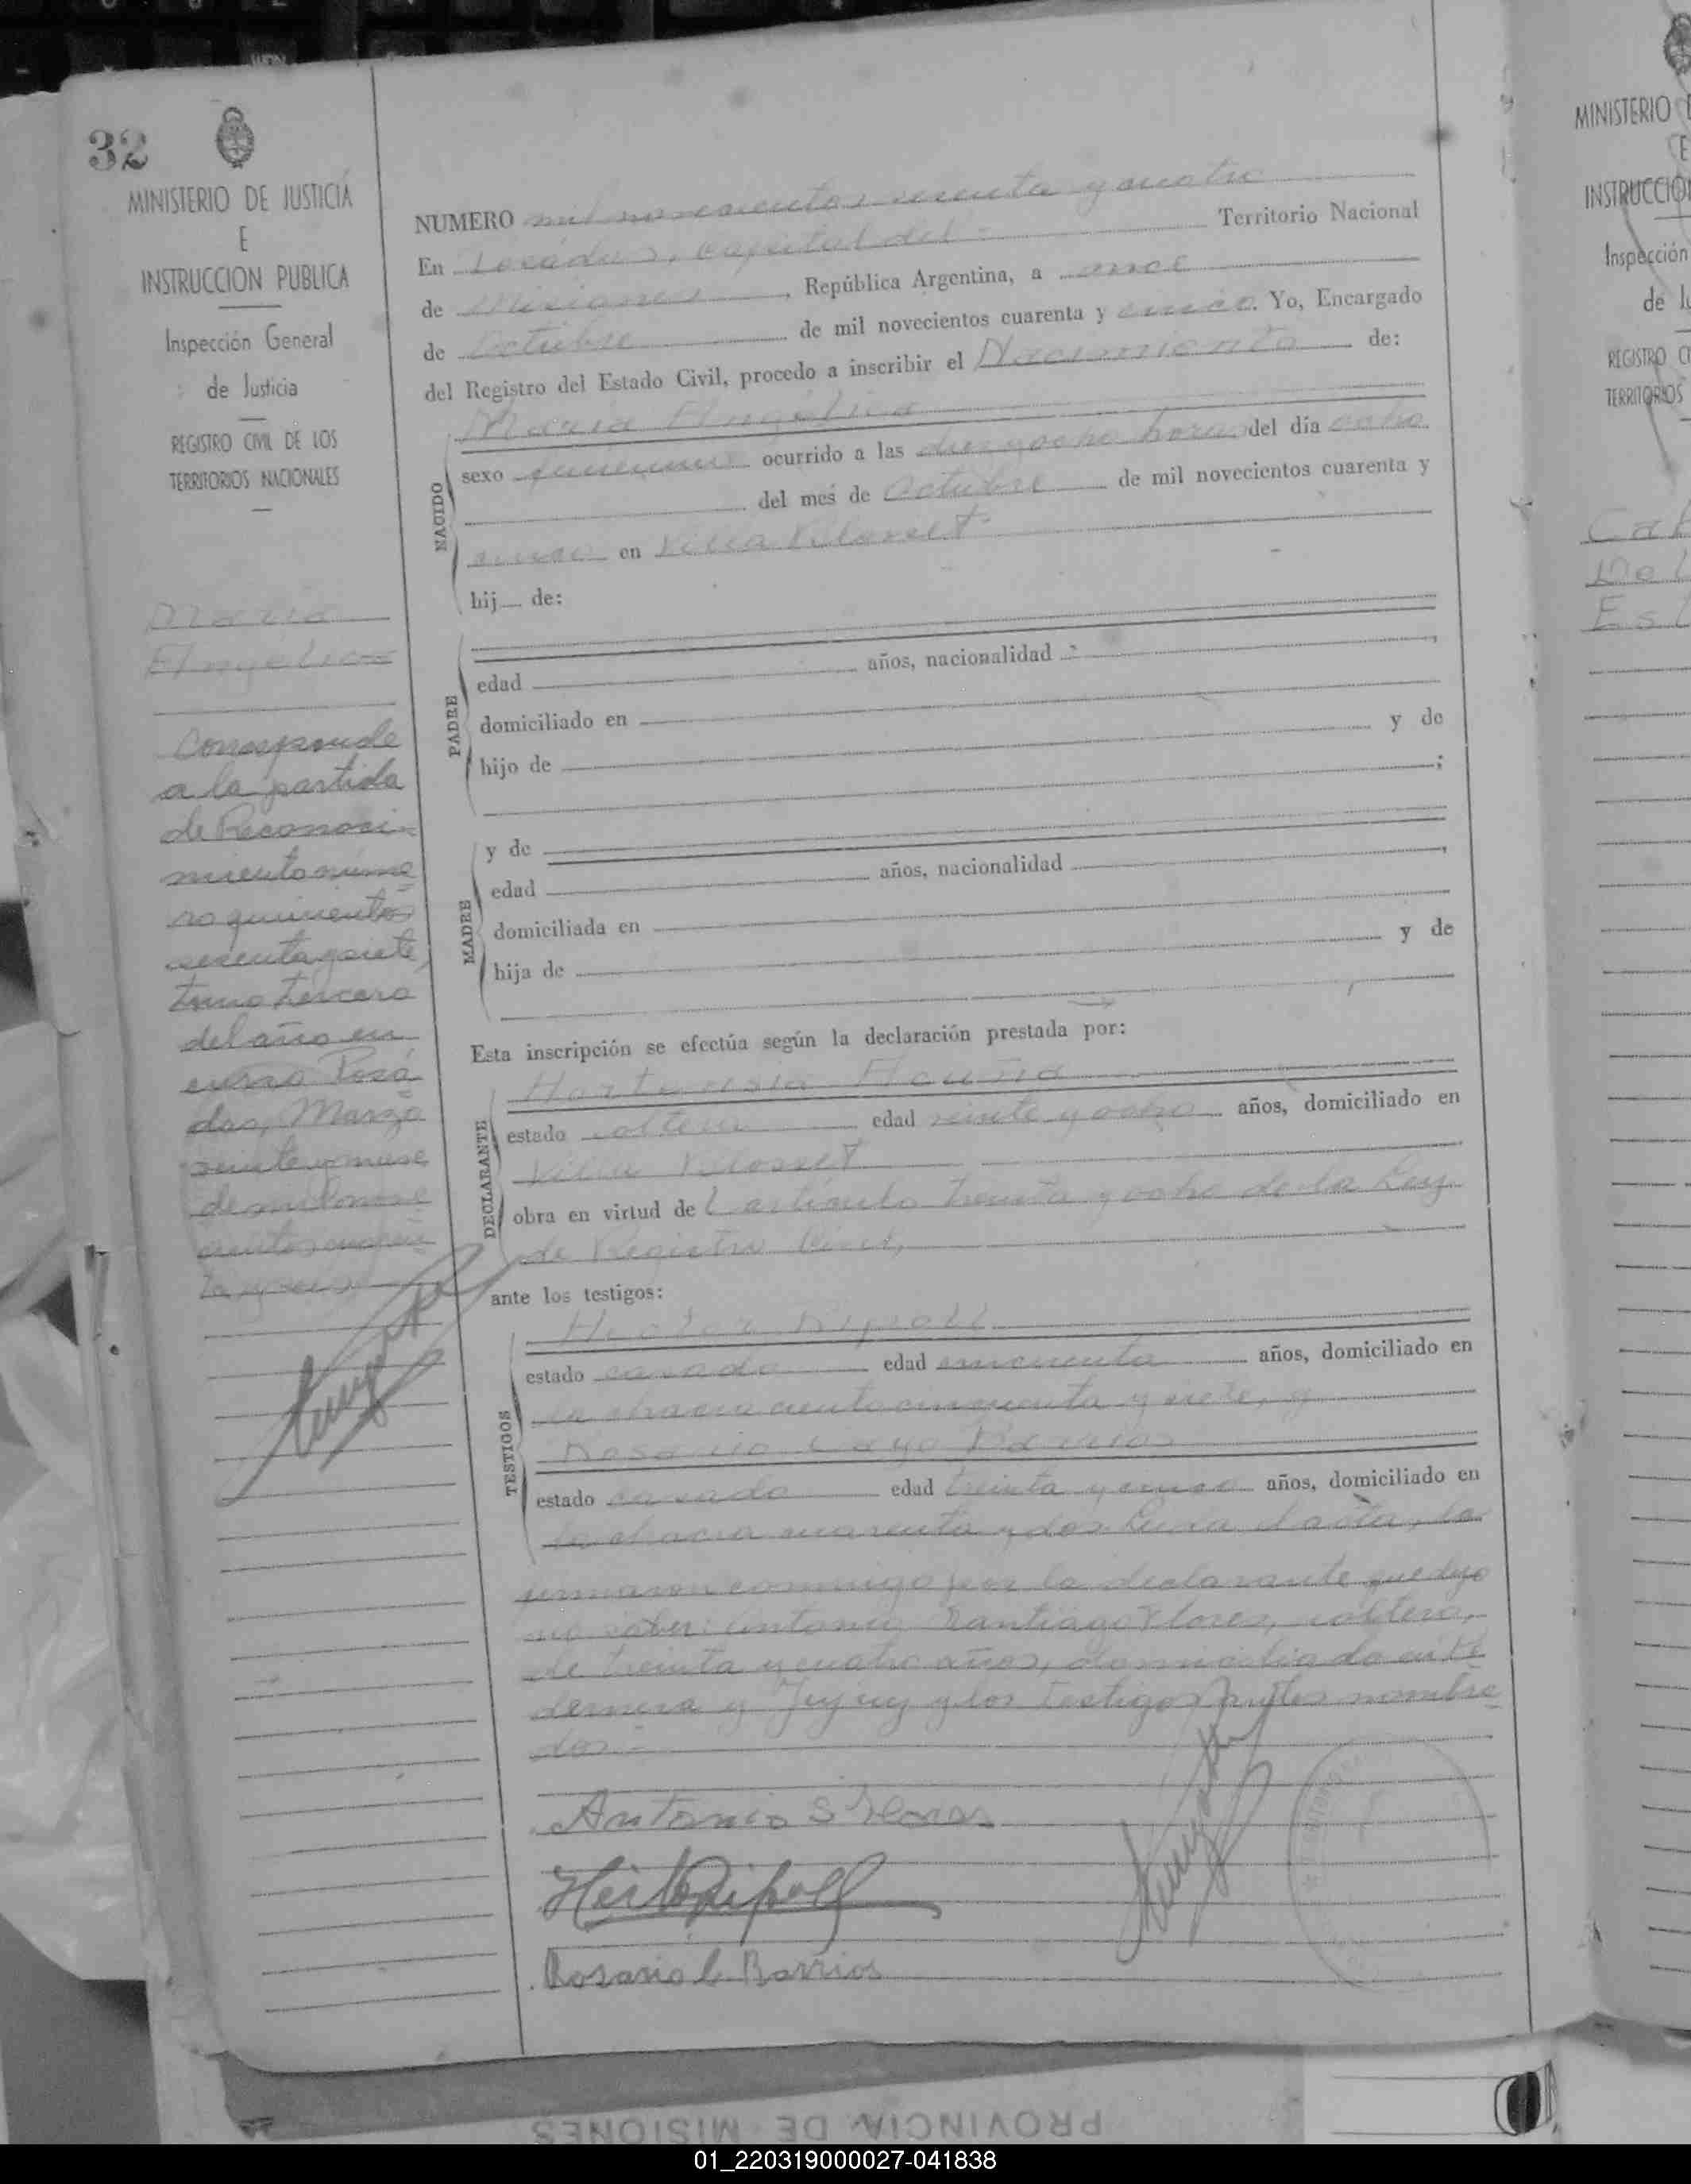 32
MINISTERIO DE JUSTICIA
E
INSTRUCCION PUBLICA
Inspección General
de Justicia
REGISTRO CIVIL DE LOS
TERRITORIOS NACIONALES
Maria
Angelica
Corresponde
a la partida
de Reconoci-
miento núme=
ro quinientos
sesenta y siete,
tomo tercero
del año en
curso Posa=
das, Marzo
veinte y nueve
de mil nove=
cientos cuaren=
ta y seis
NUMERO mil novecientos sesenta y cuatro
En Posadas, capital del - Territorio Nacional
de Misiones, República Argentina, a once
de Octubre de mil novecientos cuarenta y cinco. Yo, Encargado
del Registro del Estado Civil, procedo a inscribir el Nacimiento de:
NACIDO
Maria Angelica
sexo femenino ocurrido a las diez y ocho horas del día ocho
del mes de Octubre de mil novecientos cuarenta y
cinco en Villa
hij de:
PADRE
edad años, nacionalidad
domiciliado en
hijo de y de
;
MADRE
y de
edad años, nacionalidad ,
domiciliada en
hija de y de
Esta inscripción se efectúa según la declaración prestada por:
DECLARANTE
Hortensia Acuña
estado soltera edad veinte y ocho años, domiciliado en
Villa
obra en virtud del artículo treinta y ocho de la Ley
de Registro Civil,
ante los testigos:
TESTIGOS
Hector Ripoll
estado casado edad cincuenta años, domiciliado en
la chacra ciento cincuenta y siete, y
Rosario Cayo Barrios
estado casado edad treinta y cinco años, domiciliado en
la chacra cuarenta y dos. Leída el acta, la
firmaron conmigo por la declarante que dijo
no saber: Antonio Santiago Flores, soltero,
de treinta y cuatro años, domiciliado en
y Jujuy y los testigos antes nombra
dos.-
Antonio S Flores
Hector Ripoll
Rosario C Barrios
MINISTERIO
E
INSTRUCCION
Inspección
de Ju
REGISTRO CI
TERRITORIOS
PROVINCIA DE MISIONES
01_220319000027-041838